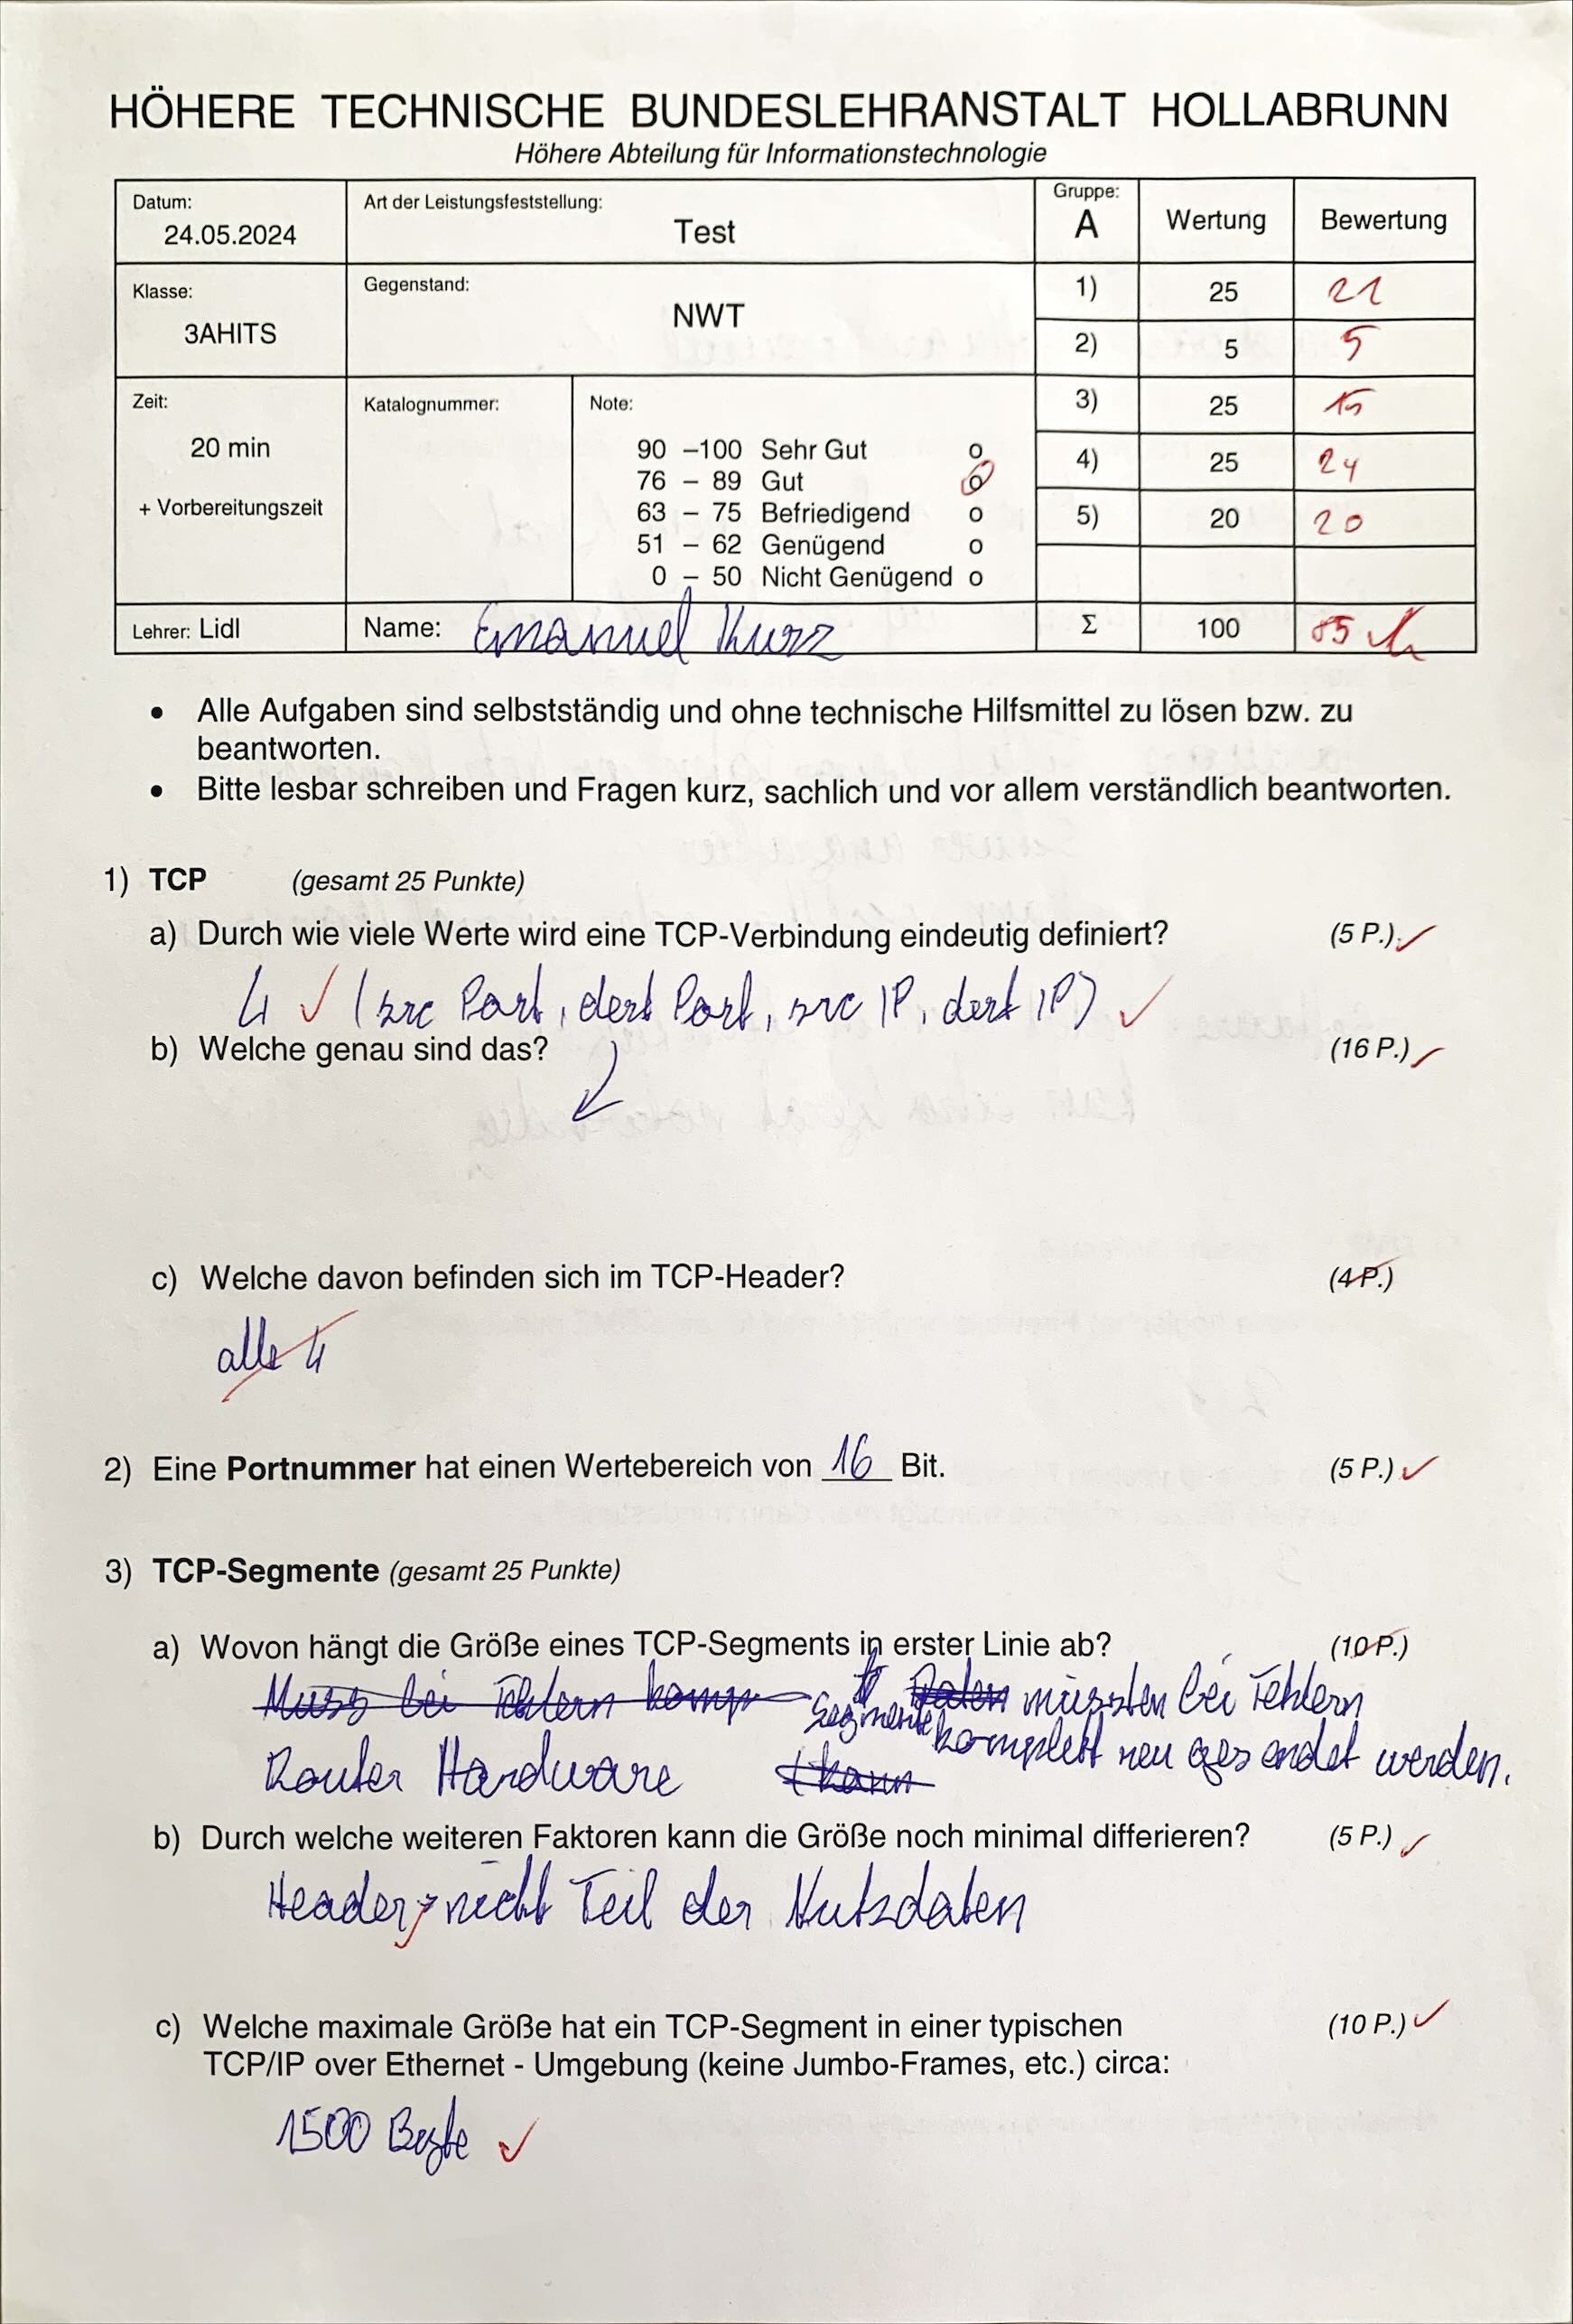 HÖHERE TECHNISCHE BUNDESLEHRANSTALT HOLLABRUNN
Höhere Abteilung für Informationstechnologie
Datum:
24.05.2024
Art der Leistungsfeststellung:
Test
Gruppe:
A
Wertung
Bewertung
Klasse:
3AHITS
Gegenstand:
NWT
1) 25 21
2) 5 5
3) 25 15
4) 25 24
5) 20 20
Zeit:
20 min
+ Vorbereitungszeit
Katalognummer:
Note:
90 –100 Sehr Gut o
76 – 89 Gut o
63 – 75 Befriedigend o
51 – 62 Genügend o
0 – 50 Nicht Genügend o
Lehrer: Lidl
Name: Emanuel Kurz
Σ 100 85
• Alle Aufgaben sind selbstständig und ohne technische Hilfsmittel zu lösen bzw. zu
beantworten.
• Bitte lesbar schreiben und Fragen kurz, sachlich und vor allem verständlich beantworten.
1) TCP (gesamt 25 Punkte)
a) Durch wie viele Werte wird eine TCP-Verbindung eindeutig definiert? (5 P.)
4 (src Port, dest Port, src IP, dest IP)
b) Welche genau sind das? (16 P.)
c) Welche davon befinden sich im TCP-Header? (4 P.)
alle 4
2) Eine Portnummer hat einen Wertebereich von 16 Bit. (5 P.)
3) TCP-Segmente (gesamt 25 Punkte)
a) Wovon hängt die Größe eines TCP-Segments in erster Linie ab? (10 P.)
Muss bei Fehlern komp Segmente Daten müssten bei Fehlern
komplett neu gesendet werden.
Router Hardware kann
b) Durch welche weiteren Faktoren kann die Größe noch minimal differieren? (5 P.)
Header → nicht Teil der Nutzdaten
c) Welche maximale Größe hat ein TCP-Segment in einer typischen (10 P.)
TCP/IP over Ethernet - Umgebung (keine Jumbo-Frames, etc.) circa:
1500 Byte